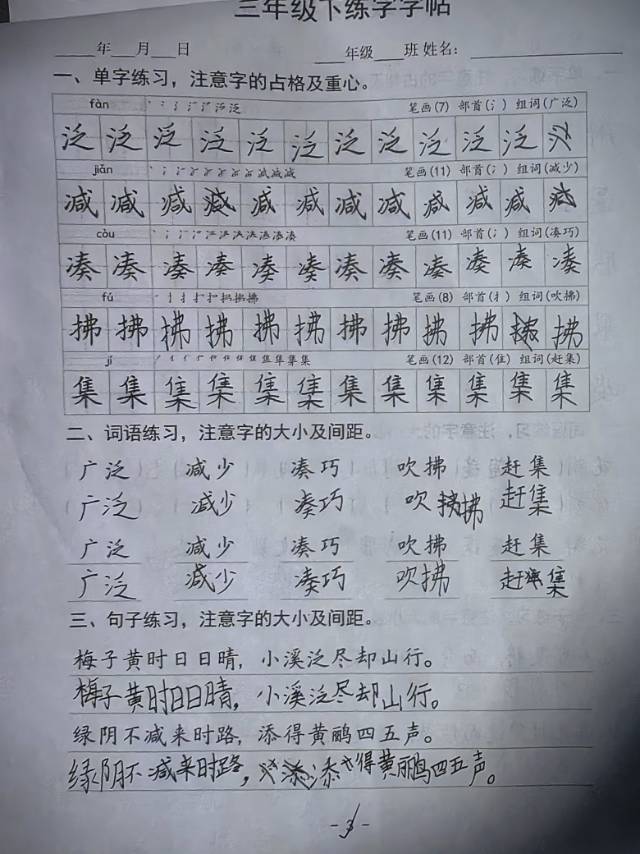 三年级下练字字帖
____年___月___日 ____年级___班 姓名：
一、单字练习，注意字的占格及重心。
fàn 笔画(7) 部首(氵) 组词(广泛)
泛 泛 泛 泛 泛 泛 泛 泛 泛 泛 泛
jiǎn 笔画(11) 部首(氵) 组词(减少)
减 减 减 减 减 减 减 减 减 减 减
còu 笔画(11) 部首(氵) 组词(凑巧)
凑 凑 凑 凑 凑 凑 凑 凑 凑 凑 凑 凑
fú 笔画(8) 部首(扌) 组词(吹拂)
拂 拂 拂 拂 拂 拂 拂 拂 拂 拂 拂
jí 笔画(12) 部首(隹) 组词(赶集)
集 集 集 集 集 集 集 集 集 集 集 集
二、词语练习，注意字的大小及间距。
广泛 减少 凑巧 吹拂 赶集
广泛 减少 凑巧 吹拂 赶集
广泛 减少 凑巧 吹拂 赶集
广泛 减少 凑巧 吹拂 赶集
三、句子练习，注意字的大小及间距。
梅子黄时日日晴，小溪泛尽却山行。
梅子黄时日日晴，小溪泛尽却山行。
绿阴不减来时路，添得黄鹂四五声。
绿阴不减来时路，添得黄鹂四五声。
-3-